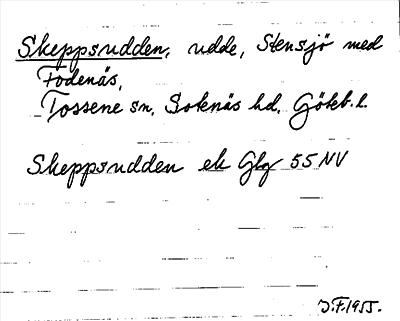 Skeppsudden, udde, Stensjö med
Födenäs,
Tossene sn, Sotenäs hd, Göteb. l.
Skeppsudden ek Glg 55 NV
J.F. 1955.